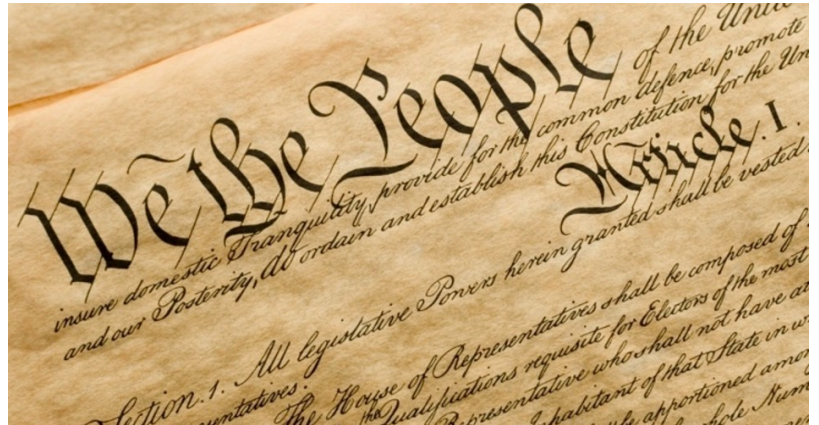 We the People of the Unite
insure domestic Tranquility, provide for the common defence, promote
and our Posterity, do ordain and establish this Constitution for the Un
Article. I.
Section. 1. All legislative Powers herein granted shall be vested
sentatives.
The House of Representatives shall be composed of
the Qualifications requisite for Electors of the most
Representative who shall not have
Inhabitant of that State in
be apportioned amon
whole Num